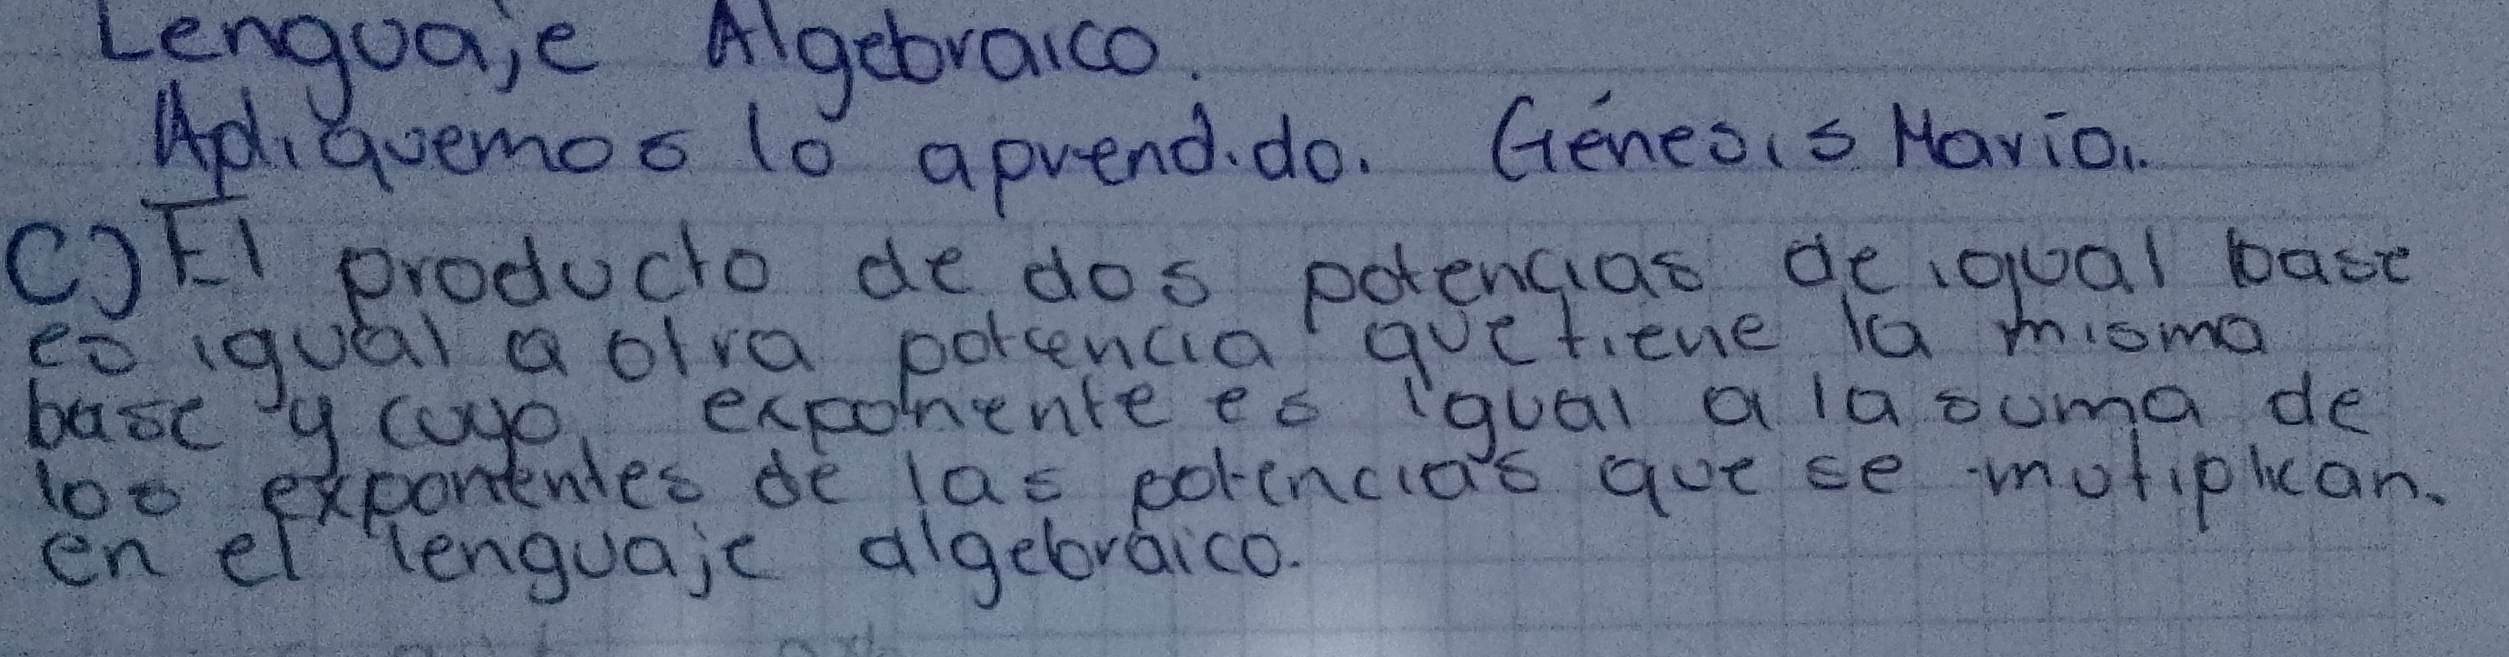 Lenguaje Algebraico.
Apliquemos lo aprendido. Génesis María.
C) El producto de dos potencias de igual base
es igual a otra potencia que tiene la misma
base y cuyo exponente es igual a la suma de
los exponentes de las potencias que se mutiplican.
en el lenguaje algebraico.